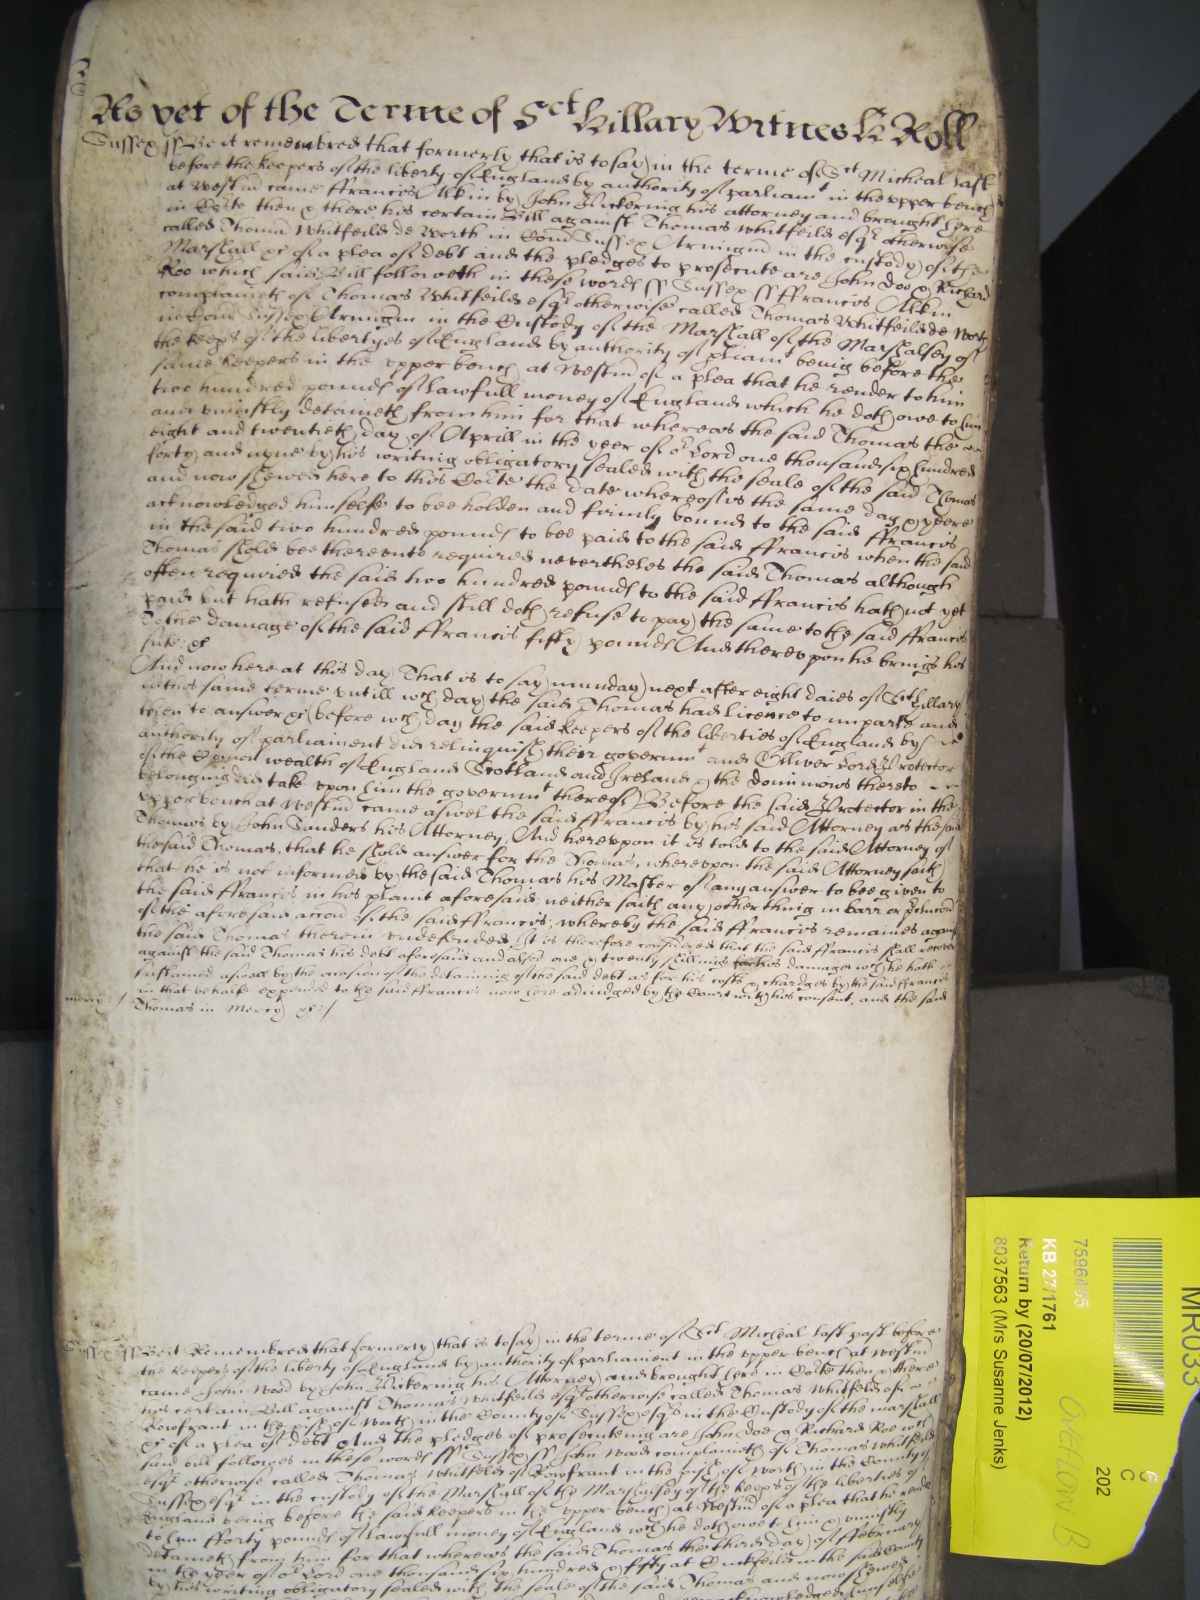 As yet of the Terme of Sct Hillary Witnes H Roll
Sussex ss Be it remembred that formerly that is to say in the terme of Sct Micheal last
before the keepers of the liberty of England by authority of parliamt in the upper bench
at Westm came ffrancis Alkin by John Pickering his attorney and brought here
in Co'te then & there his certain Bill against Thomas Whitfeild esqr otherwise
called Thomas Whitfeild de Worth in Com Sussex Armigm in the custody of the
Marshall &c of a plea of debt and the pledges to prosecute are John Doo & Richard
Roo which said Bill followeth in these words ss Sussex ss ffrancis Alkin
complaineth of Thomas Whitfeild esqr otherwise called Thomas Whitfeild de Worth
in Com Sussex Armigm in the Custody of the Marshall of the Marshalsey of
the keeps of the libertyes of England by authority of pliamt being before the
same keepers in the upper bench at Westm of a plea that he render to him
two hundred pounds of lawfull money of England which he doth owe to him
and uniustly detaineth from him for that whereas the said Thomas the
eight and twentieth day of Aprill in the yeer of or Lord one thousand six hundred
forty and nyne by his writing obligatory sealed with the seale of the said Thomas
and now shewed here to this Co'te the date whereof is the same day & yeere
acknowledged himselfe to bee holden and firmly bound to the said ffrancis
in the said two hundred pounds to bee paid to the said ffrancis when the said
Thomas shold bee thereunto required nevertheles the said Thomas although
often required the said two hundred pounds to the said ffrancis hath not yet
paid but hath refused and still doth refuse to pay the same to the said ffrancis
To the damage of the said ffrancis fifty pounds And thereupon he brings his
sute &c
And now here at this day That is to say munday next after eight daies of Sct Hillary
in this same terme untill wch day the said Thomas had licence to imparle and
then to answer &c before wch day the said keepers of the liberties of England by
authority of parliament did relinquish their governmt and Olliver Lord Protector
of the Common wealth of England Scotland and Ireland & the dominions thereto
belonging did take upon him the governmt thereof Before the said Protector in the
upper bench at Westm came aswel the said ffrancis by his said Attorney as the said
Thomas by John Sanders his Attorney, And hereupon it is told to the said Attorney of
the said Thomas, that he shold answer for the Thomas, whereupon the said Attorney saith
that he is not informed by the said Thomas his Master of any answer to bee given to
the said ffrancis in his plaint aforesaid, neither saith any other thing in barr or
of the aforesaid accon of the said ffrancis, whereby the said ffrancis remaines against
the said Thomas therein undefended. It is therefore considered that the said ffrancis shall recover
against the said Thomas his debt aforesaid and alsoe one & twenty shillings for his damages wch he hath
sustained aswell by the occasion of the detaining of the said debt as for his costs & chardges by the said ffrancis
in that behalfe expended to the said ffrancis now here adiudged by the Court with his consent, and the said
mercy
Thomas in Mercy &c /
Sussex ss Be it Remembred that formerly that is to say in the terme of Sct Micheal last past before
the keepers of the liberty of England by authority of parliament in the upper bench at Westm
came John Wood by John Pickering his Attorney and brought here in Co'te then & there
his certain Bill against Thomas Whitfeild esqr otherwise called Thomas Whitfeld of
Rowfrant in the pish of Worth in the County of Sussex esqr in the Custody of the marshall
&c of a plea of debt And the pledges of prosecuteing are John Doe & Richard Roe wch
said bill followes in these words ss Sussex ss John Wood complaineth of Thomas Whitfeild
esqr otherwise called Thomas Whitfeld of Rowfrant in the pish of Worth in the County of
Sussex esqr in the custody of the Marshall of the Marshalsey of the keeps of the liberties of
England being before the said keepers in the upper bench at Westm of a plea that he render
to him fforty pounds of lawfull money of England wch he doth owe to him & uniustly
detaineth from him for that whereas the said Thomas the third day of february
in the yeer of or Lord one thousand six hundred & fifty at Cuckfeild in the said County
by his writing obligatory sealed with the seale of the said Thomas and now shewed
MR033
7596495
KB 27/1761
Return by (20/07/2012)
8037563 (Mrs Susanne Jenks)
C
202
OVERFLOW B